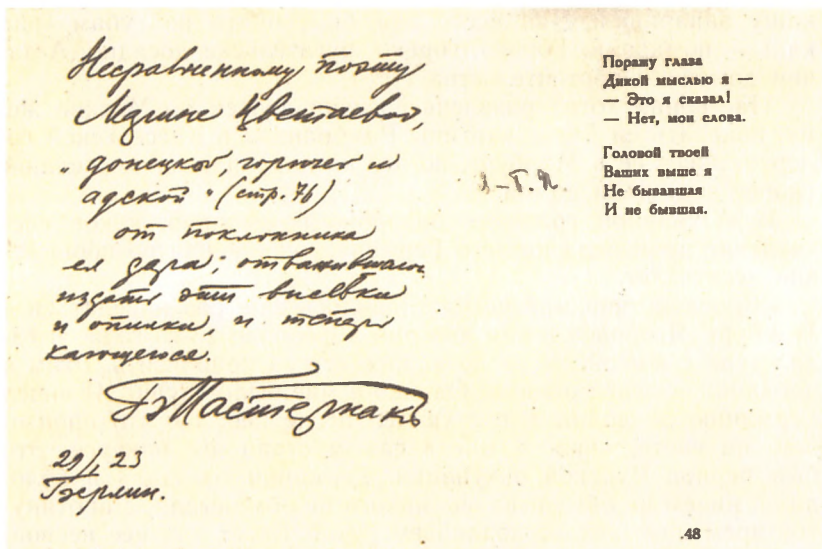 Несравненному поэту
Марине Цветаевой,
„донецкой, горючей и
адской" (стр. 76)
от поклонника
ея дара; отважившагося
издать эти высевки
и опилки, и теперь
кающегося.
БПастернакъ
29/I 23
Берлин.
Б. П.
Поражу глава
Дикой мыслью я —
— Это я сказал!
— Нет, мои слова.
Головой твоей
Ваших выше я
Не бывавшая
И не бывшая.
48